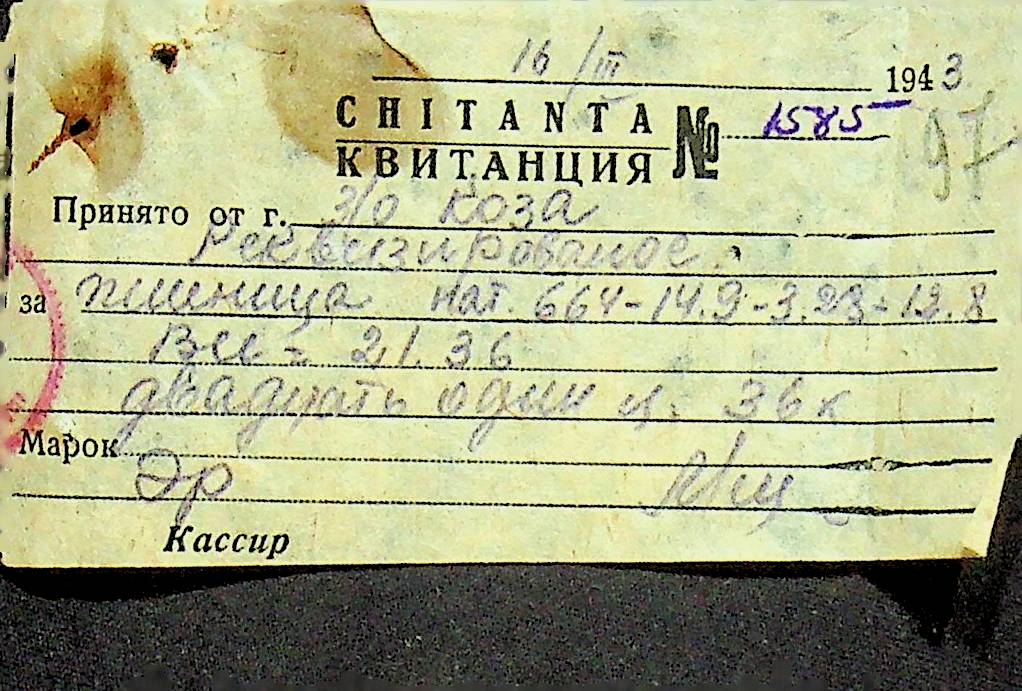 16/III 1943
CHITANTA
КВИТАНЦИЯ № 1585
97
Принято от г. з/о коза
Реквизированое
за пшеница нат. 664-14.9-3.23-12.8
Вес = 21.36
двадцать один ц. 36 к
Марок
Кассир